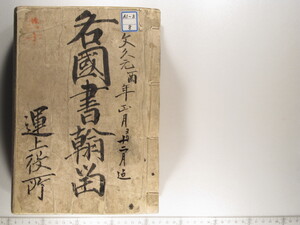 文久元酉年正月ヨリ十二月迄
各國書翰留
運上役所